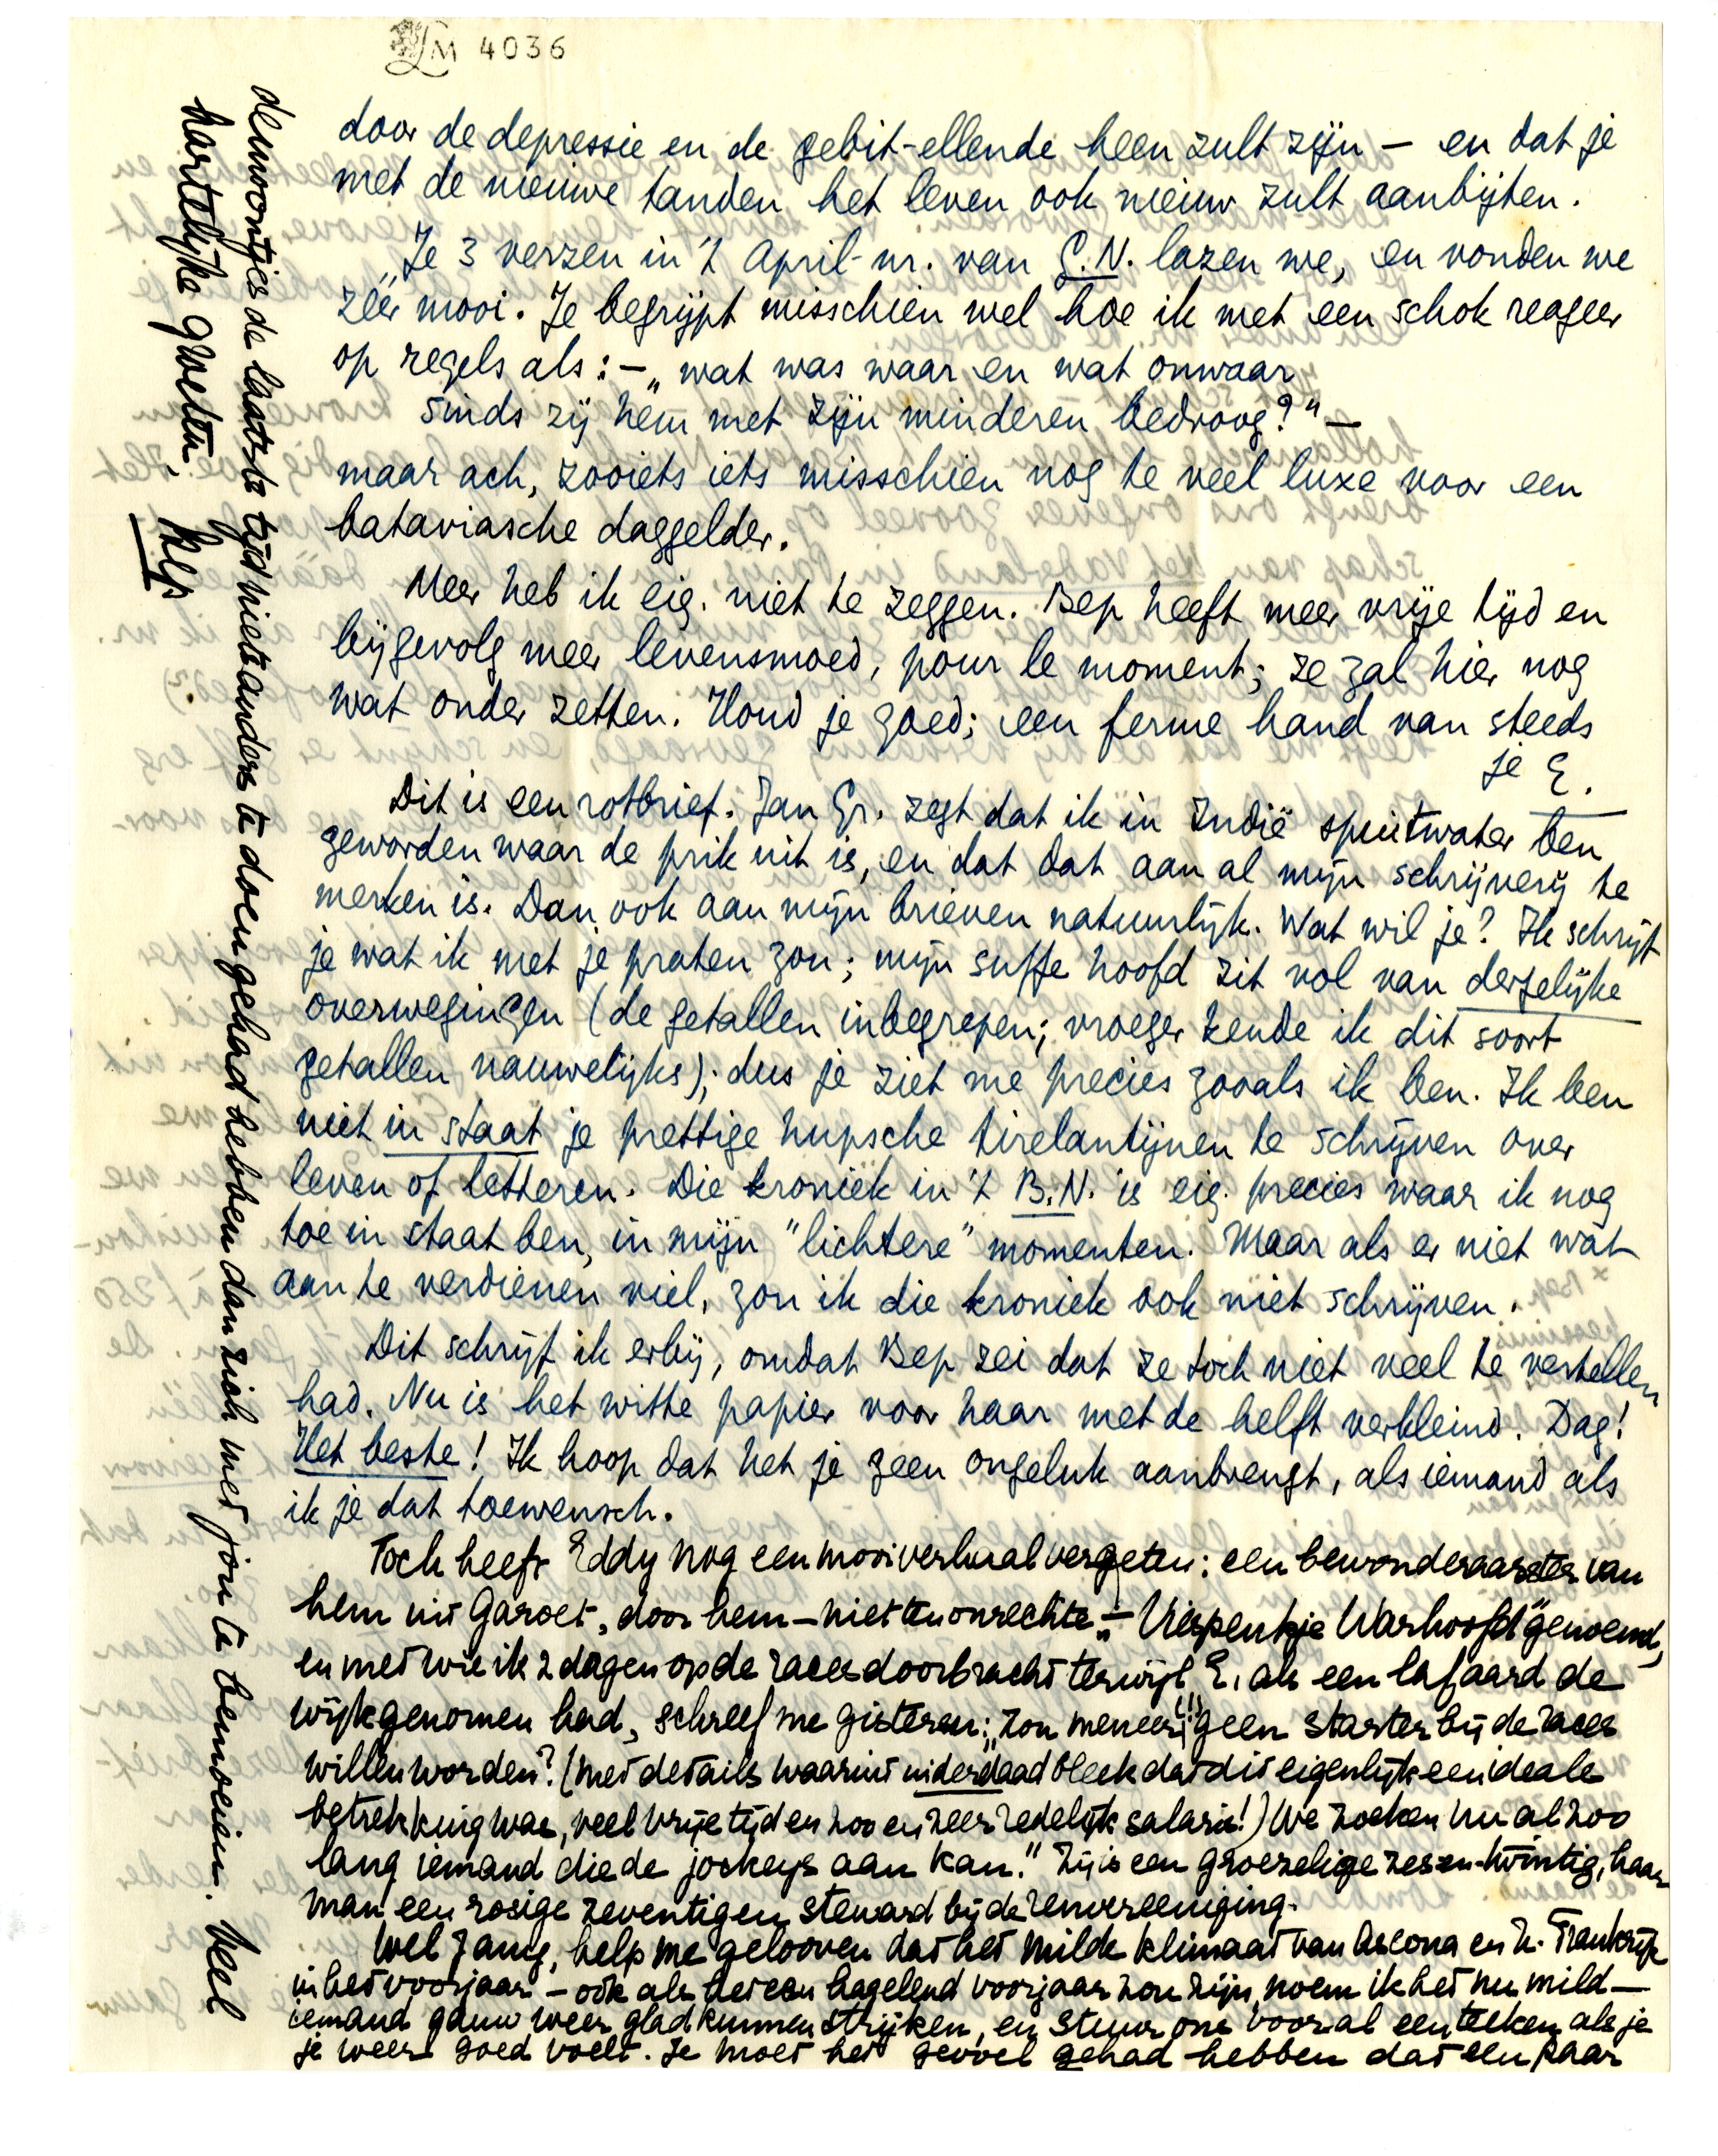 LM 4036
door de depressie en de gebit-ellende heen zult zijn — en dat je
met de nieuwe tanden het leven ook nieuw zult aanbijten.
Je 3 verzen in 't April-nr. van G.N. lazen we, en vonden we
zéér mooi. Je begrijpt misschien wel hoe ik met een schok reageer
op regels als: — „wat was waar en wat onwaar
sinds zij hem met zijn minderen bedroog?" —
maar ach, zooiets iets misschien nog te veel luxe voor een
bataviasche daggelder.
Meer heb ik eig. niet te zeggen. Bep heeft meer vrije tijd en
bijgevolg meer levensmoed, pour le moment; ze zal hier nog
wat onder zetten. Houd je goed; een ferme hand van steeds
je E.
Dit is een rotbrief. Jan Gr. zegt dat ik in Indië spuitwater ben
geworden waar de prik uit is, en dat dat aan al mijn schrijverij te
merken is. Dan ook aan mijn brieven natuurlijk. Wat wil je? Ik schrijf
je wat ik met je praten zou; mijn suffe hoofd zit vol van dergelijke
overwegingen (de getallen inbegrepen; vroeger kende ik dit soort
getallen nauwelijks); dus je ziet me precies zooals ik ben. Ik ben
niet in staat je prettige hupsche tirelantijnen te schrijven over
leven of letteren. Die kroniek in 't B.N. is eig. precies waar ik nog
toe in staat ben, in mijn "lichtere" momenten. Maar als er niet wat
aan te verdienen viel, zou ik die kroniek ook niet schrijven.
Dit schrijf ik erbij, omdat Bep zei dat ze toch niet veel te vertellen
had. Nu is het witte papier voor haar met de helft verkleind. Dag!
Het beste! Ik hoop dat het je geen ongeluk aanbrengt, als iemand als
ik je dat toewensch.
Toch heeft Eddy nog een mooi verhaal vergeten: een bewonderaarster van
hem uit Garoet, door hem — niet ten onrechte — „Viespenkje Warhoofd" genoemd,
en met wie ik 2 dagen op de races doorbracht terwijl E. als een lafaard de
wijk genomen had, schreef me gisteren: „zou meneer (!) geen starter bij de races
willen worden? (met details waaruit inderdaad bleek dat dit eigenlijk een ideale
betrekking was, veel vrije tijd en zoo en zeer redelijk salaris!) We zoeken nu al zoo
lang iemand die de jockeys aan kan." Zij is een groezelige zes-en-twintig, haar
man een rosige zeventigen steward bij de renvereeniging.
Wel Jany, help me gelooven dat het milde klimaat van Ascona en Z. Frankrijk
in het voorjaar — ook als het een hagelend voorjaar zou zijn, noem ik het nu mild —
iemand gauw weer glad kunnen strijken, en stuur ons vooral een teeken als je
je weer goed voelt. Je moet het gevoel gehad hebben dat een paar
demoontjes de laatste tijd niets anders te doen gehad hebben dan zich met jou te bemoeien. Veel
hartelijke groeten,
Bep